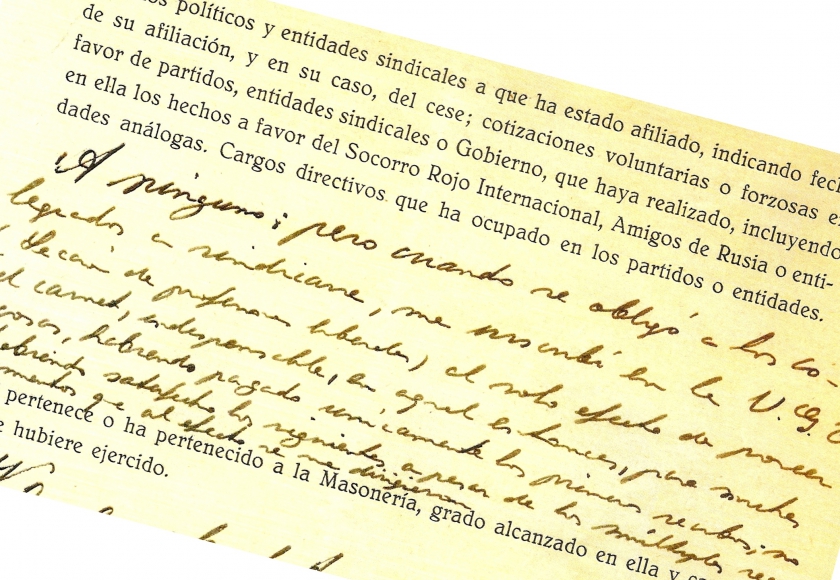 os políticos y entidades sindicales a que ha estado afiliado, indicando fech
de su afiliación, y en su caso, del cese; cotizaciones voluntarias o forzosas e
favor de partidos, entidades sindicales o Gobierno, que haya realizado, incluyendo
en ella los hechos a favor del Socorro Rojo Internacional, Amigos de Rusia o enti-
dades análogas. Cargos directivos que ha ocupado en los partidos o entidades.
A ninguno; pero cuando se obligó a los co-
legiados a sindicarse, me inscribí en la U. G.
de profesiones liberales) al solo efecto de poseer
el carnet, indispensable, en aquel entonces, para muchas
cosas, habiendo pagado únicamente los primeros recibos; no
habiendo satisfecho los siguientes a pesar de los múltiples
que al efecto se me dirigieron
pertenece o ha pertenecido a la Masonería, grado alcanzado en ella y
e hubiere ejercido.